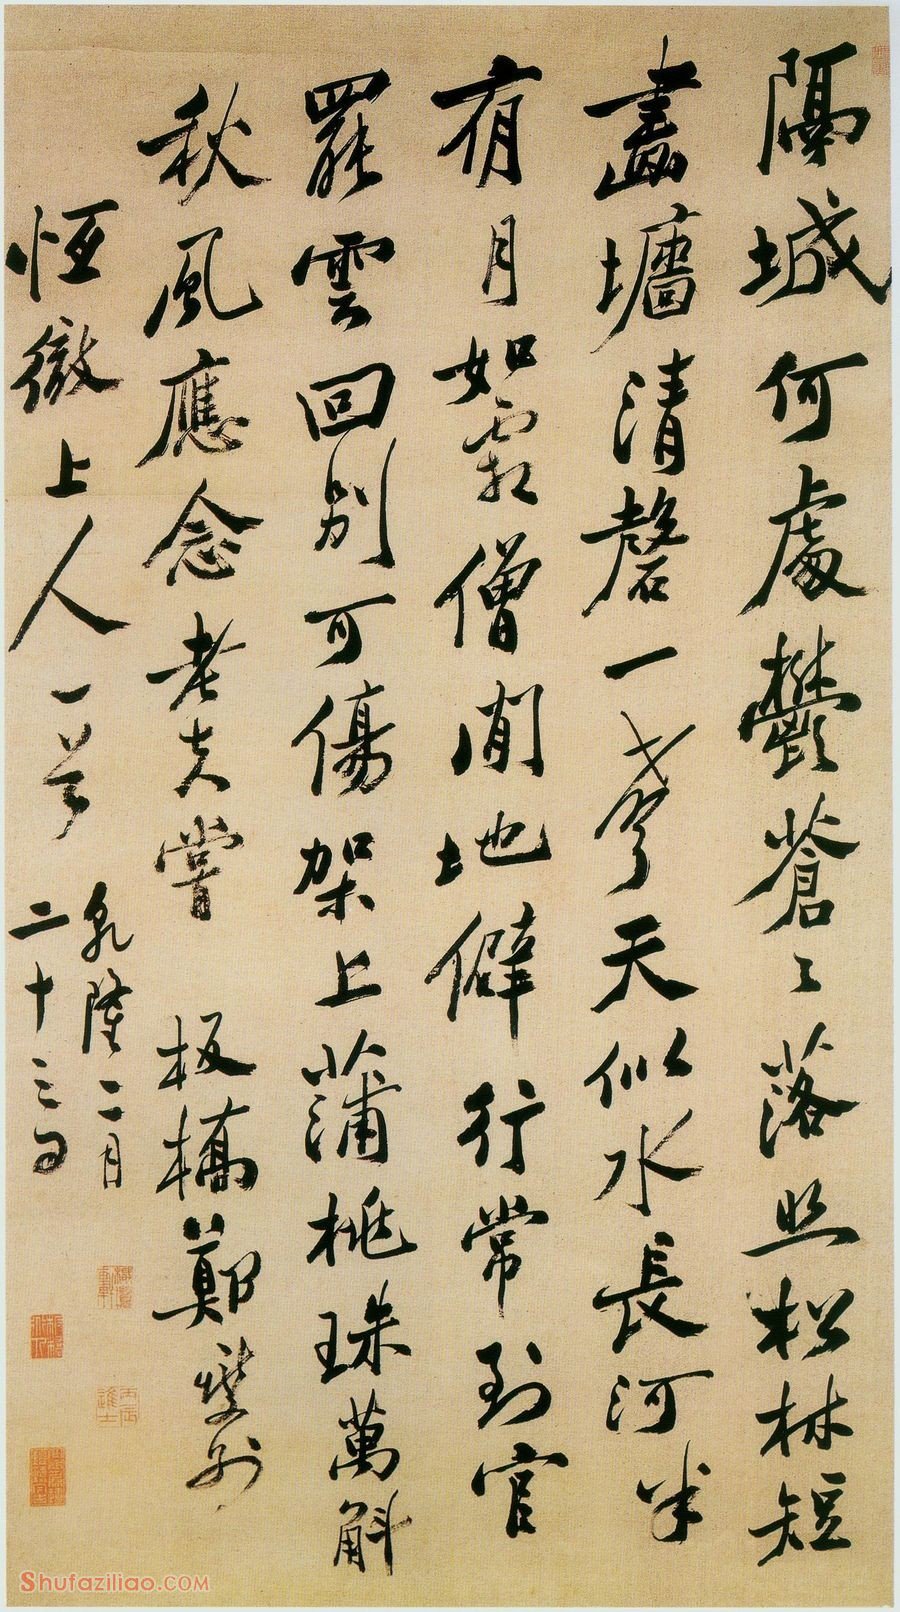 隔城何處鬱蒼々落照松林短
畫墻清磬一聲天似水長河半
有月如霜僧閒地僻行常到官
罷雲回別可傷架上蒲桃珠萬斛
秋風應念老夫嘗 板橋鄭燮
恒徹上人一笑
乾隆二月
二十三日
丙辰進士
Shufaziliao.COM